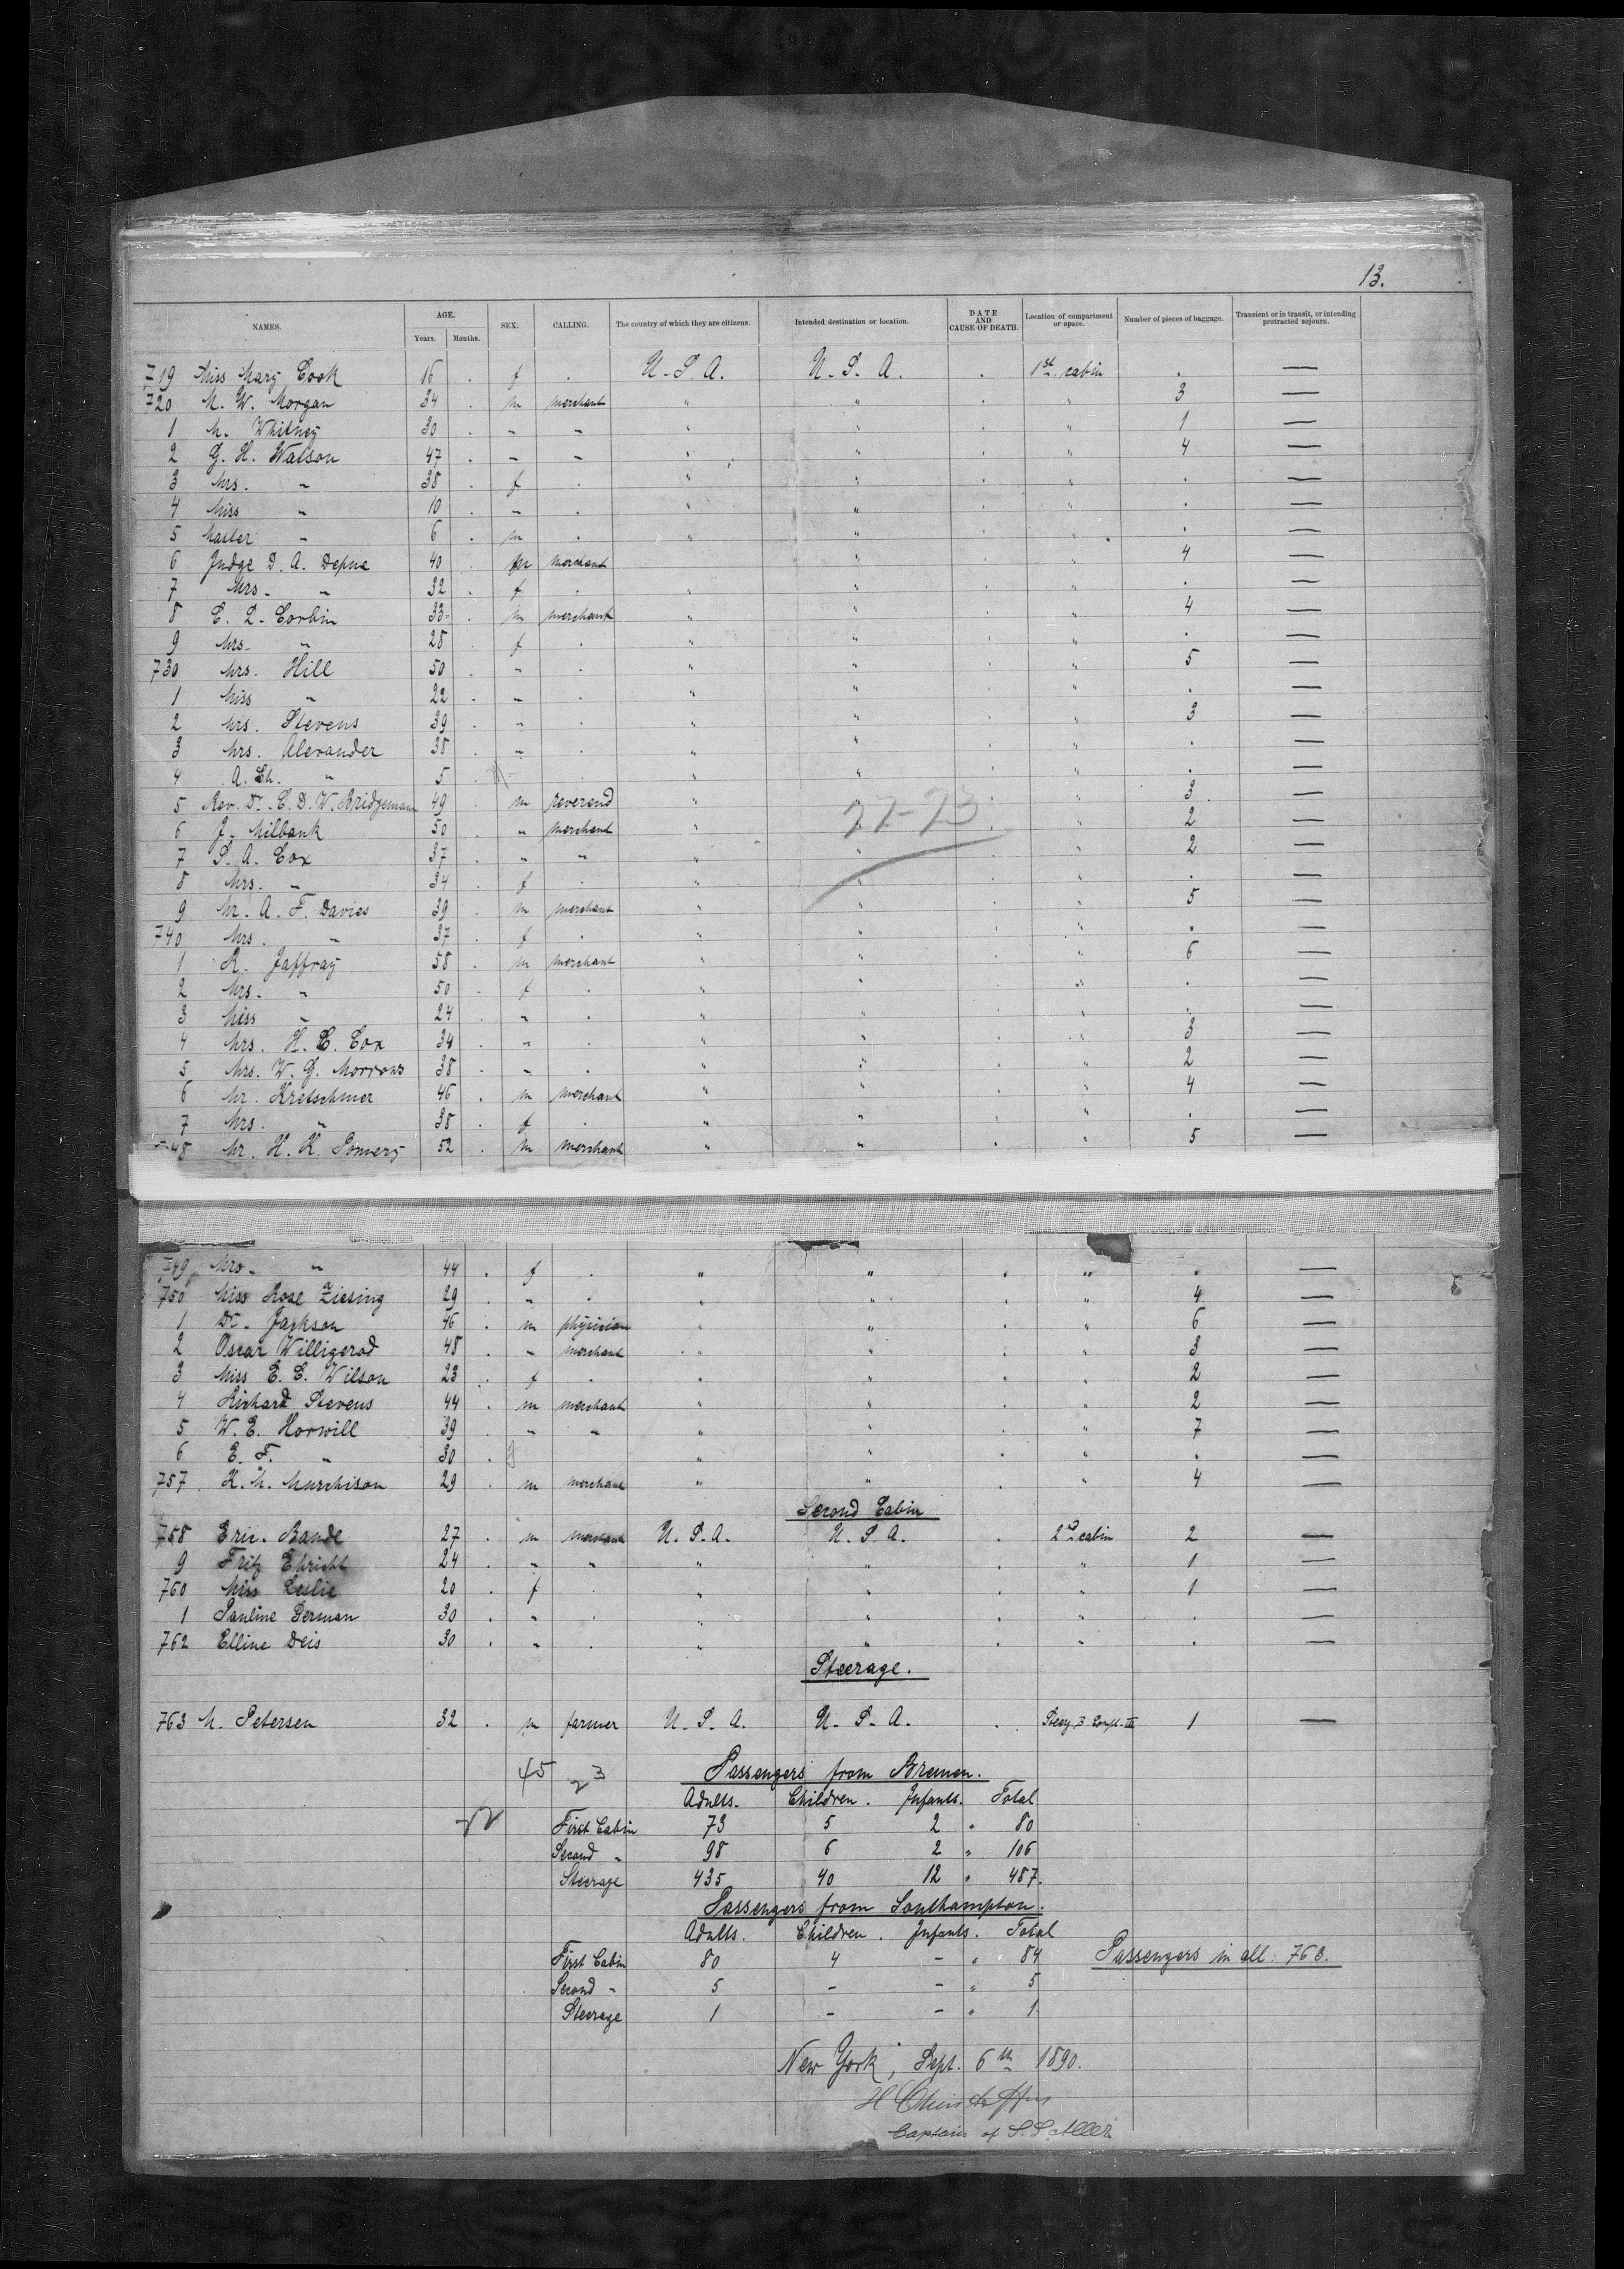 13.
NAMES. AGE. Years. Months. SEX. CALLING. The country of which they are citizens. Intended destination or location. DATE AND CAUSE OF DEATH. Location of compartment or space. Number of pieces of baggage. Transient or in transit, or intending protracted sojourn.
719 Miss Mary Cook 16 . f . U. S. A. U. S. A. . 1st cabin . —
720 M. W. Morgan 34 . m merchant " " . " 3 —
1 M. Whitney 30 . " " " " . " 1 —
2 G. H. Watson 47 . " " " " . " 4 —
3 Mrs. " 38 . f . " " . " . —
4 Miss " 10 . " . " " . " . —
5 Master " 6 . m . " " . " . —
6 Judge D. A. Depue 40 . m merchant " " . " 4 —
7 Mrs. " 32 . f . " " . " . —
8 E. L. Corbin 33 . m merchant " " . " 4 —
9 Mrs. " 28 . f . " " . " . —
730 Mrs. Hill 50 . " . " " . " 5 —
1 Miss " 22 . " . " " . " . —
2 Mrs. Stevens 39 . " . " " . " 3 —
3 Mrs. Alexander 38 . " . " " . " . —
4 A. Ch. " 5 . " . " " . " . —
5 Rev. Dr. C. D. W. Bridgemann 49 . m reverend " " . " 3 —
6 J. Milbank 50 . " merchant " " . " 2 —
7 S. A. Cox 37 . " " " " . " 2 —
8 Mrs. " 34 . f . " " . " . —
9 Mr. A. F. Davies 39 . m merchant " " . " 5 —
740 Mrs. " 37 . f . " " . " . —
1 R. Jaffray 58 . m merchant " " . " 6 —
2 Mrs. " 50 . f . " " . " . —
3 Miss " 24 . " . " " . " . —
4 Mrs. H. C. Cox 34 . " . " " . " 3 —
5 Mrs. W. G. Morrows 38 . " . " " . " 2 —
6 Mr. Kretschmer 46 . m merchant " " . " 4 —
7 Mrs. " 38 . f . " " . " . —
748 Mr. H. K. Pomery 52 . m merchant " " . " 5 —
749 Mrs. " 44 . f . " " . " . —
750 Miss Rose Ziesing 29 . " . " " . " 4 —
1 Dr. Jackson 46 . m physician " " . " 6 —
2 Oscar Willigerod 48 . " merchant " " . " 3 —
3 Miss E. E. Wilson 23 . f . " " . " 2 —
4 Richard Stevens 44 . m merchant " " . " 2 —
5 W. E. Horwill 39 . " " " " . " 7 —
6 E. F. " 30 . " " . " . —
757 K. M. Murchison 29 . m merchant " " . " 4 —
Second Cabin
758 Eric Bande 27 . m merchant U. S. A. U. S. A. . 2nd cabin 2 —
9 Fritz Ehricht 24 . " " " " . " 1 —
760 Miss Leslie 20 . f . " " . " 1 —
1 Pauline Derman 30 . " . " " . " . —
762 Elline Deis 30 . " . " " . " . —
Steerage.
763 M. Petersen 32 . m farmer U. S. A. U. S. A. . Steerg. B. Compt. III 1 —
45 23
Passengers from Bremen.
Adults. Children. Infants. Total
First Cabin 73 5 2 " 80
Second " 98 6 2 " 106
Steerage 435 40 12 " 487.
Passengers from Southampton.
Adults. Children. Infants. Total
First Cabin 80 4 - " 84 Passengers in all: 763.
Second " 5 - - " 5
Steerage 1 - - " 1
New York, Sept. 6th 1890.
H Christoffers
Captain of S. S. Aller